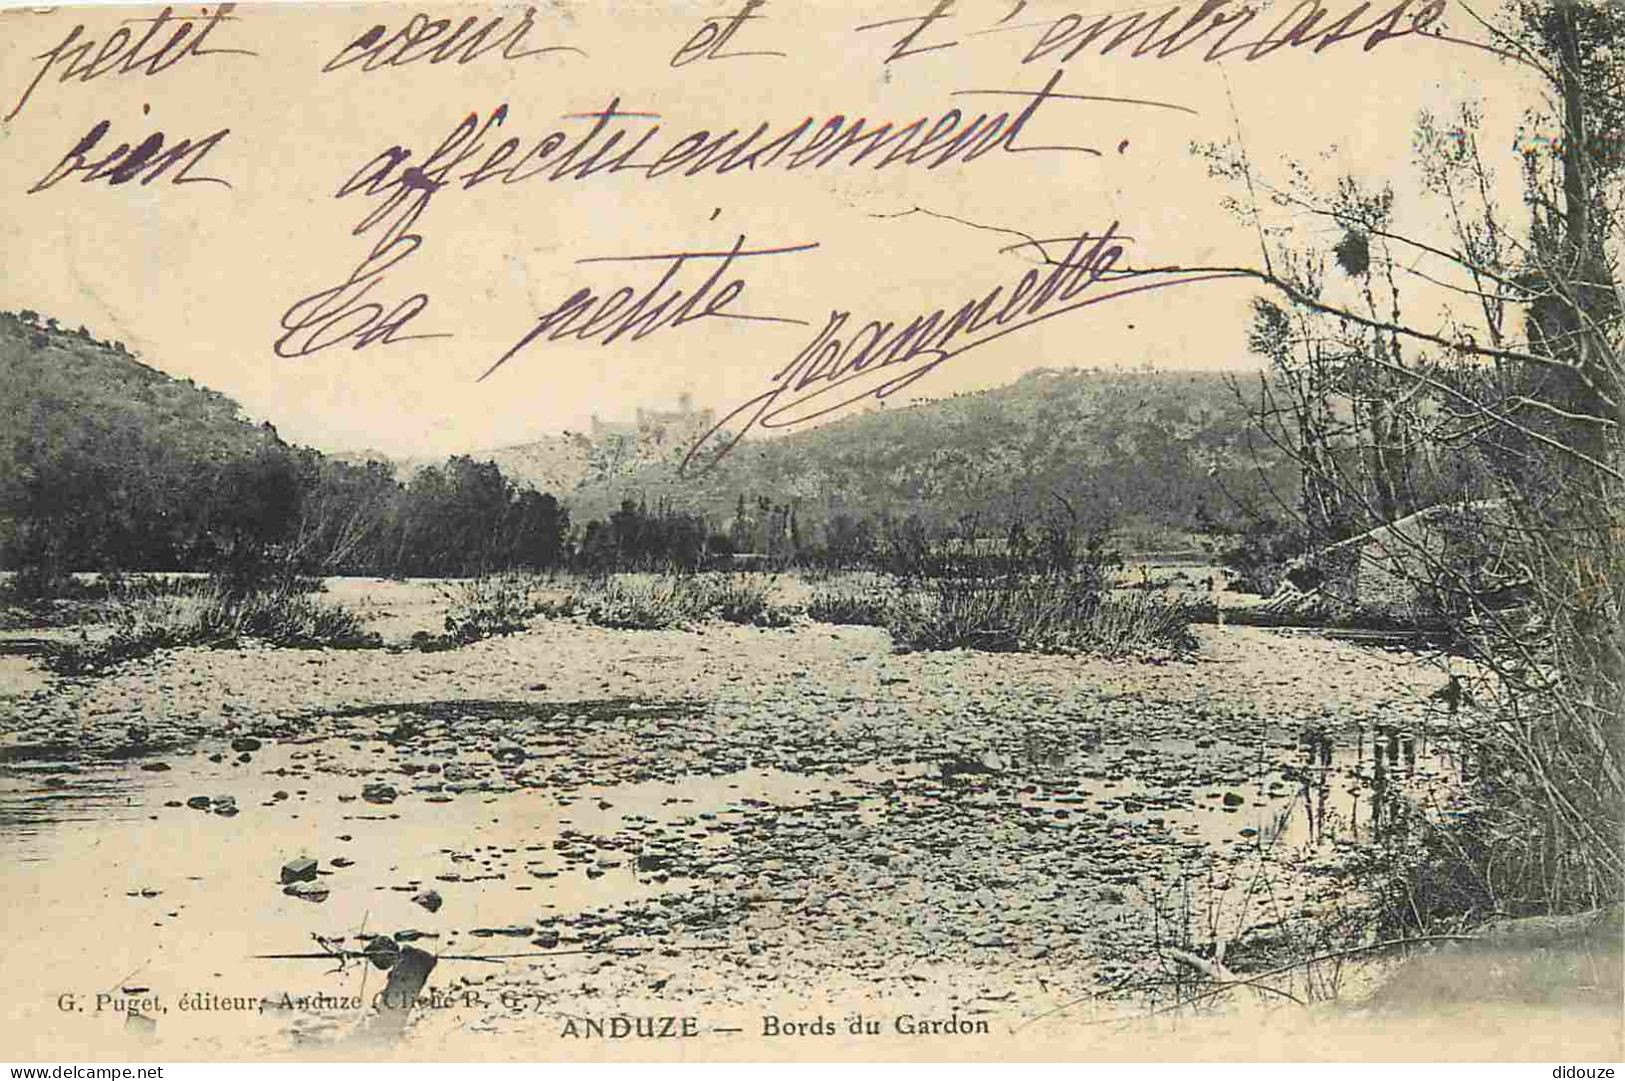 petit cœur et t'embrasse
bien affectueusement.
La petite Jeannette
G. Puget, éditeur, Anduze (Cliché P. G.)
ANDUZE — Bords du Gardon
delcampe.net
didouze